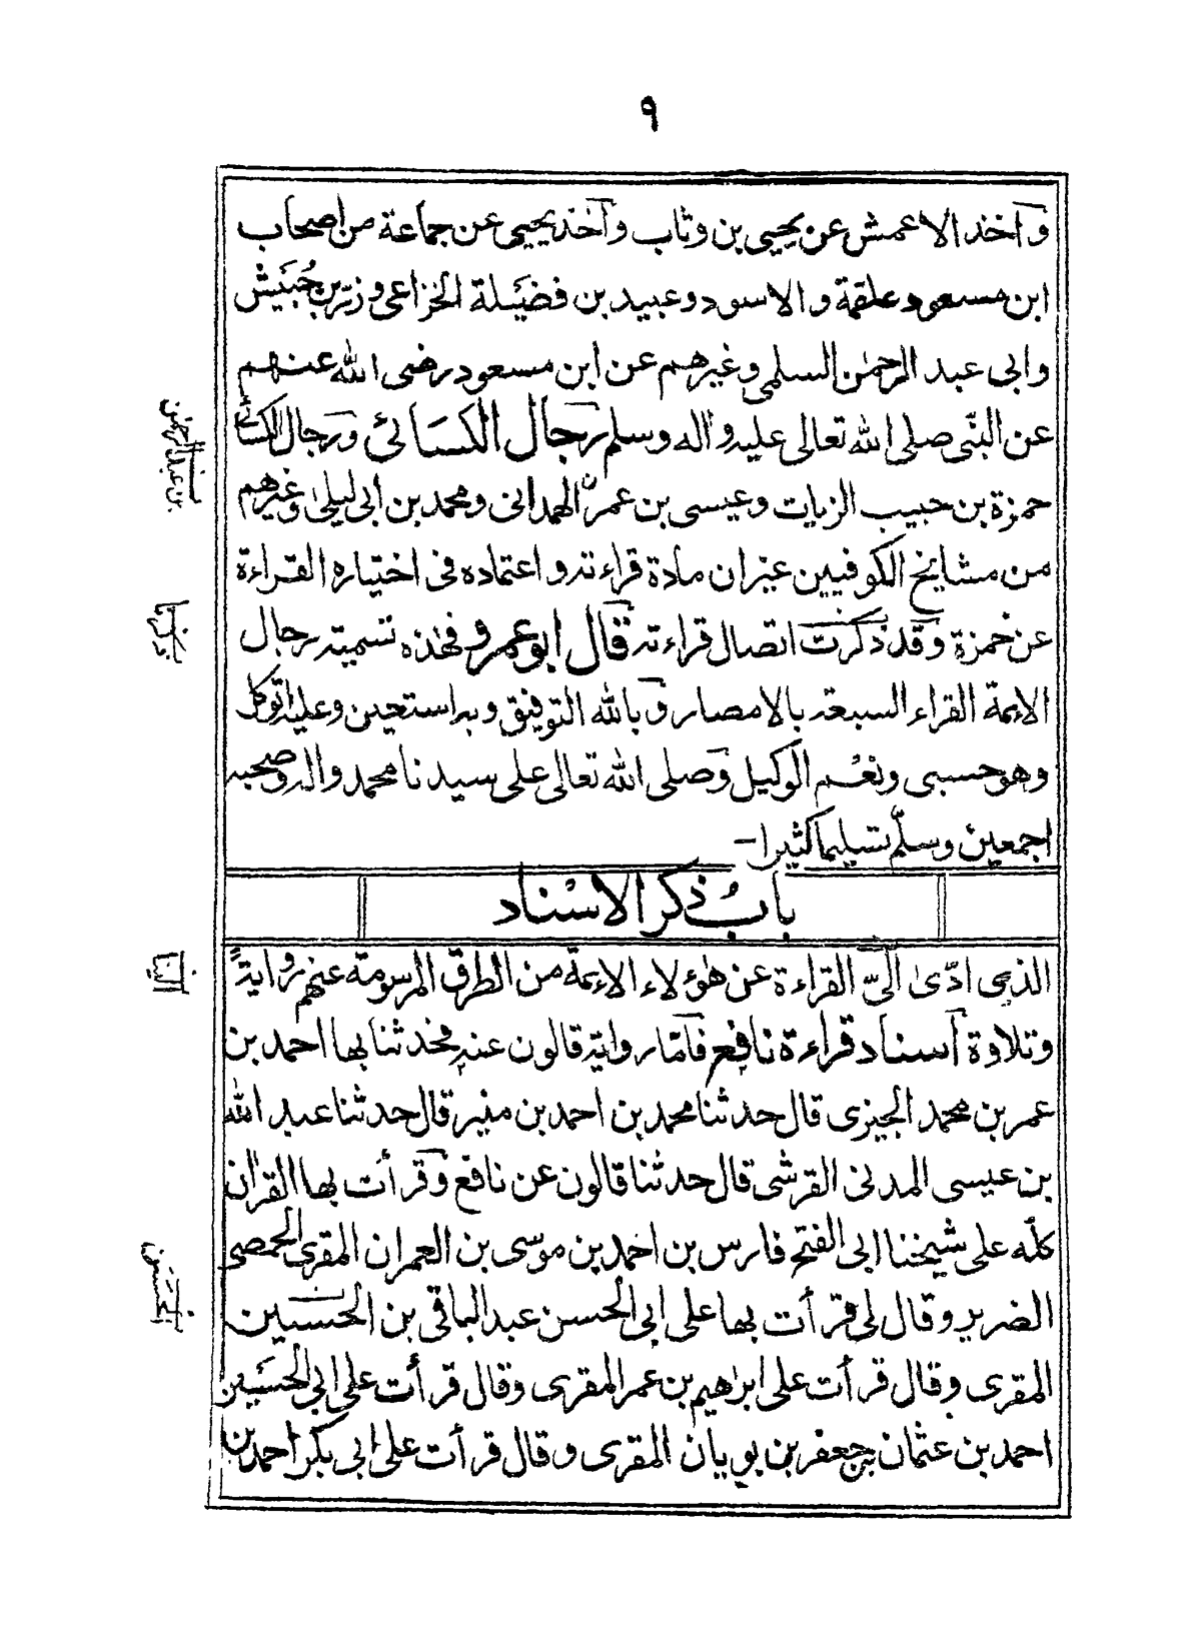 ٩
وآخذ الاعمش عن يحيى بن وثاب وآخذ يحيى عن جماعة من اصحاب
ابن مسعود علقمة والاسود وعبيد بن فضيلة الخزاعى وزر بن حبيش
وابى عبد الرحمٰن السلمى وغيرهم عن ابن مسعود رضى الله عنهم
عن النبى صلى الله تعالى عليه واٰله وسلم رجال الكسائى ورجال الكسائى
حمزة بن حبيب الزيات وعيسى بن عمر الهمدانى ومحمد بن ابى ليلىٰ وغيرهم
من مشايخ الكوفيين غير ان مادة قراءته واعتماده فى اختياره القراءة
عن حمزة وقد ذكرت اتصال قراءته قال ابو عمرو فهٰذه تسمية رجال
الائمة القراء السبعة بالامصار وبالله التوفيق وبه استعين وعليه اتوكل
وهو حسبى ونعم الوكيل وصلى الله تعالى على سيدنا محمد واٰله وصحبه
اجمعين وسلّم تسليما كثيرا-
باب ذكر الاسناد
الذى ادّىٰ الىّ القراءة عن هٰؤلاء الائمة من الطرق المرسومة عنهم رواية
وتلاوة آسناد قراءة نافع فآمّا رواية قالون عنه فحدثنا بها احمد بن
عمر بن محمد الجيزى قال حدثنا محمد بن احمد بن منير قال حدثنا عبد الله
بن عيسى المدنى القرشى قال حدثنا قالون عن نافع وقرأت بها القراٰن
كلّه على شيخنا ابى الفتح فارس بن احمد بن موسى بن العمران المقرى الحمصى
الضرير وقال لى قرأت بها على ابى الحسن عبد الباقى بن الحسين
المقرى وقال قرأت على ابراهيم بن عمر المقرى وقال قرأت على ابى الحسين
احمد بن عثمان بن جعفر بن بويان المقرى وقال قرأت على ابى بكر احمد بن
بن عبد الرحمٰن
الينا
الحسن